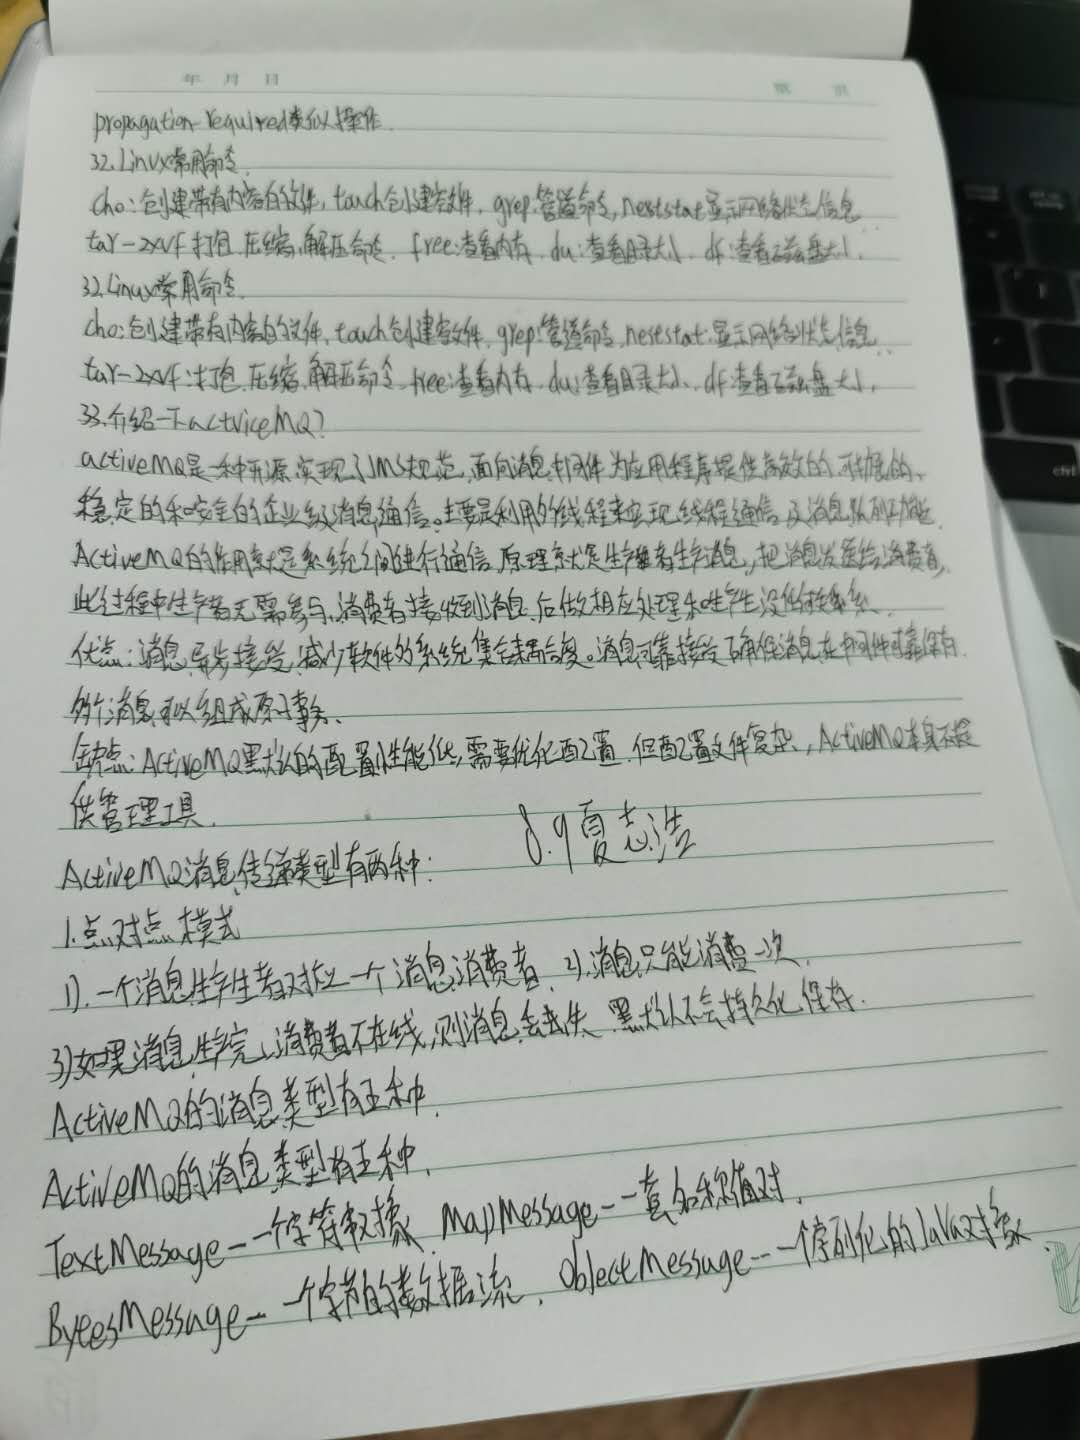 年 月 日
propagation-required类似操作.
32.Linux常用命令.
cho:创建带有内容的文件, touch创建空文件, grep:管道命令, neststat显示网络状态信息
tar-zxvf打包.压缩,解压命令. free:查看内存. du:查看目录大小. df:查看磁盘大小.
32.Linux常用命令.
cho:创建带有内容的文件, touch创建空文件, grep:管道命令, neststat:显示网络状态信息.
tar-zxvf:打包.压缩.解压命令. free:查看内存. du:查看目录大小. df:查看磁盘大小.
33.介绍一下actviceMQ?
activeMQ是一种开源,实现了JMS规范,面向消息中间件为应用程序提供高效的.可扩展的、
稳定的和安全的企业级消息通信。主要是利用多线程来实现线程通信及消息队列功能.
ActiveMQ的作用就是系统之间进行通信,原理就是生产者生产消息,把消息发送给消费者,
此过程中生产者无需参与,消费者接收到消息后做相应处理和生产没有任何关系.
优点:消息异步接受,减少软件多系统集合耦合度。消息可靠接受,确保消息在中间件可靠保存.
多个消息可以组成原子事务.
缺点:ActiveMQ默认的配置性能低,需要优化配置.但配置文件复杂,ActiveMQ本身不提
供管理工具.
8.9夏志浩
ActiveMQ消息传递类型有两种:
1.点对点模式
1).一个消息生产者对应一个消息消费者, 2).消息只能消费一次.
3)如果消息生产完,消费者不在线,则消息会丢失.默认不会持久化保存.
ActiveMQ的消息类型有五种.
ActiveMQ的消息类型有五种.
TextMessage--一个字符串对象. MapMessage--一套名称值对.
ByeesMessage--一个字节的数据流. ObjectMessage--一个序列化的Java对象.